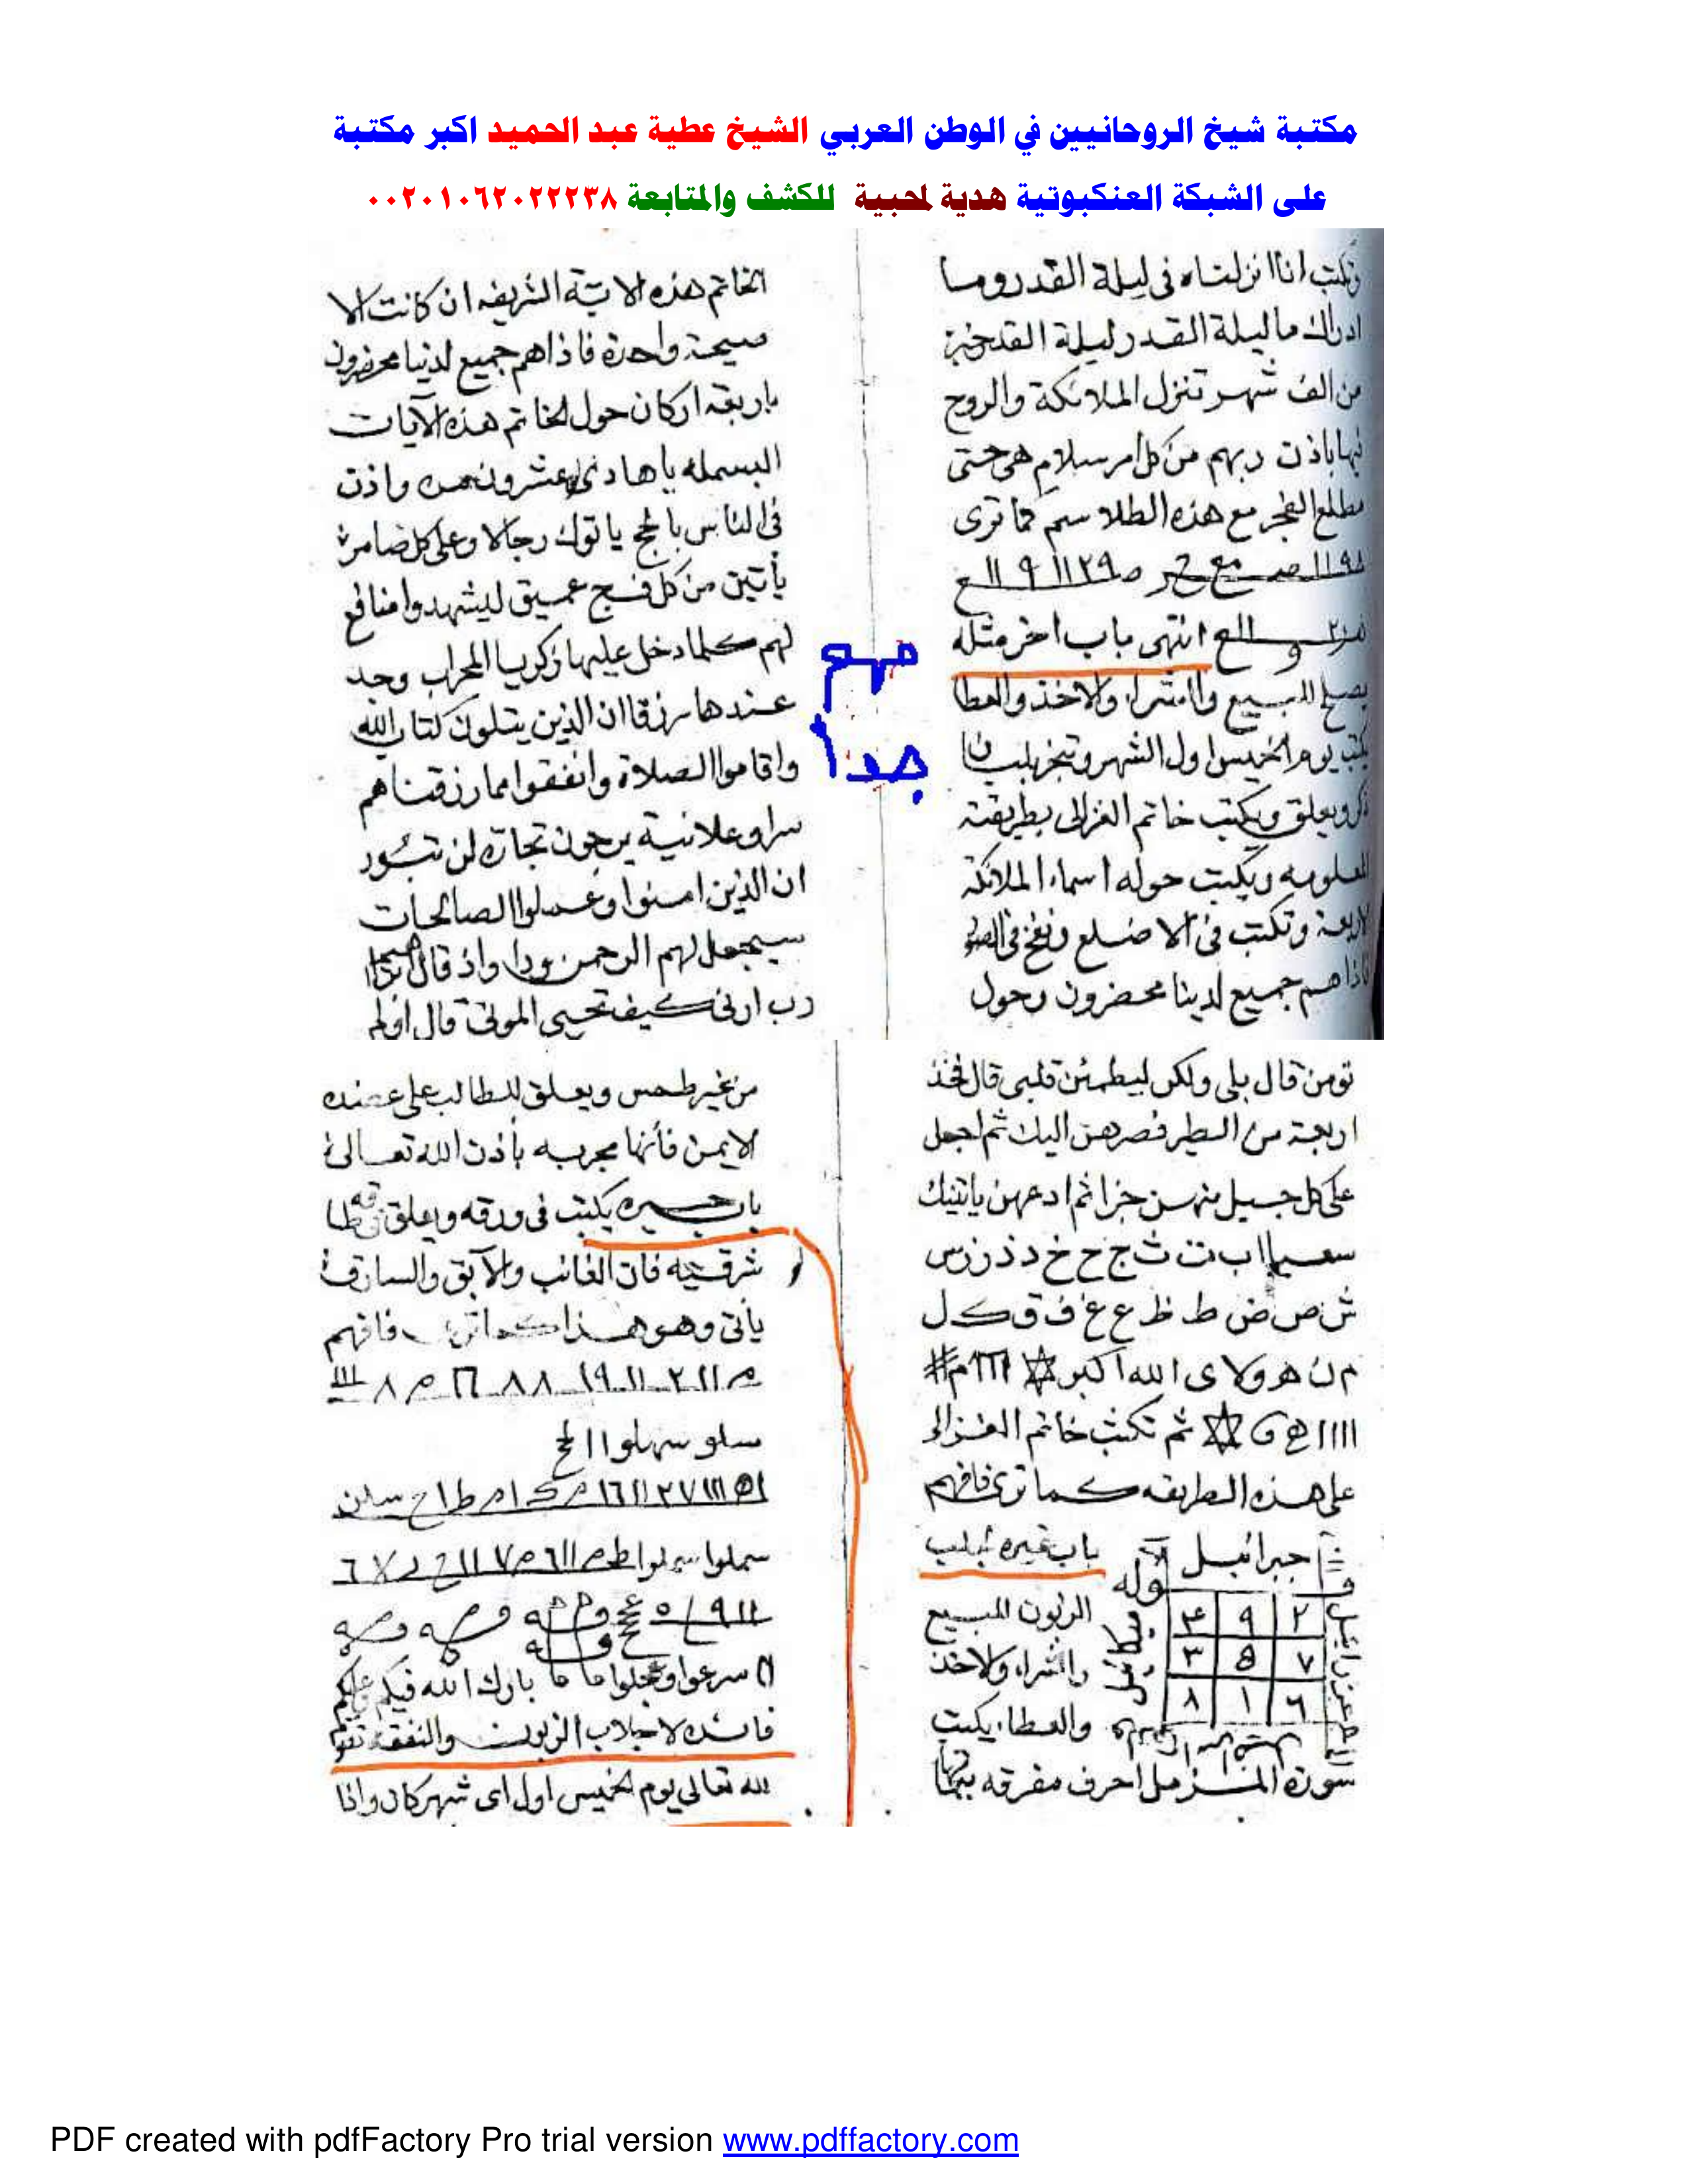 مكتبة شيخ الروحانيين في الوطن العربي الشيخ عطية عبد الحميد اكبر مكتبة
على الشبكة العنكبوتية هدية لمحبية للكشف والمتابعة ٠٠٢٠١٠٦٢٠٢٢٢٣٨
وتكتب انا انزلناه فى ليلة القدر وما
ادراك ما ليلة القدر ليلة القدر خير
من الف شهر تنزل الملائكة والروح
فيها باذن ربهم من كل امر سلام هى حتى
مطلع الفجر مع هذه الطلاسم كما ترى
انتهى باب اخر مثله
يصلح للبيع والشراء والاخذ والعطا
يكتب يوم الخميس اول الشهر وتبخر بلبان
ذكر ويعلق ويكتب خاتم الغزالى بطريقته
المعلومه ويكتب حوله اسماء الملائكة
الاربعة وتكتب فى الاضلع ونفخ فى الصور
فاذا هم جميع لدينا محضرون وحول
مهم
جدا
الخاتم هذه الاية الشريفه ان كانت الا
صيحة واحدة فاذا هم جميع لدينا محضرون
باربعة اركان حول الخاتم هذه الآيات
البسمله يا هادى عشرون واذن
فى الناس بالحج ياتوك رجالا وعلى كل ضامر
يأتين من كل فج عميق ليشهدوا منافع
لهم كلما دخل عليها زكريا المحراب وجد
عندها رزقا ان الذين يتلون كتاب الله
واقاموا الصلاة وانفقوا مما رزقناهم
سرا وعلانية يرجون تجارة لن تبور
ان الذين امنوا وعملوا الصالحات
سيجعل لهم الرحمن ودا واذ قال
رب ارنى كيف تحيى الموتى قال اولم
تومن قال بلى ولكن ليطمئن قلبى قال فخذ
اربعة من الطير فصرهن اليك ثم اجعل
على كل جبل منهن جزا ثم ادعهن ياتينك
سعيا ا ب ت ث ج ح خ د ذ ر ز س
ش ص ض ط ظ ع غ ف ق ك ل
م ن ه و لا ى الله اكبر
ثم تكتب خاتم الغزالى
على هذه الطريقه كما ترى فافهم
جبرائيل
٢ ٩ ٤
٧ ٥ ٣
٦ ١ ٨
باب غيره لجلب
الزبون للبيع
والشراء والاخذ
والعطاء يكتب
سورة المزمل احرف مفرقه
من غير طمس ويعلق للطالب على عضده
الايمن فأنها مجربه بأذن الله تعالى
باب يكتب فى ورقه ويعلق
شرقيه فان الغائب والآبق والسارق
يأتى وهو هذا كما ترى فافهم
سلو سهلوا الخ
سملوا
سرعوا وعجلوا ما ما بارك الله فيكم وعليكم
فائده لاجلاب الزبون والنفقة تقوم
لله تعالى يوم الخميس اول اى شهر كان واذا
PDF created with pdfFactory Pro trial version www.pdffactory.com